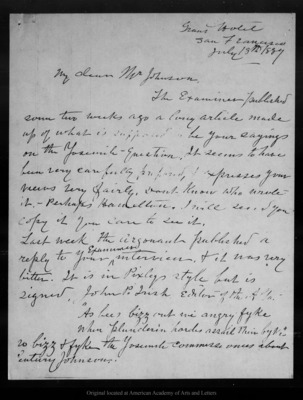 Grand Hotel
San Francisco
July 13th 1889
My dear Mr Johnson
The Examiner published
some two weeks ago a long article made
up of what is supposed to be your sayings
on the Yosemite Question. It seems to have
been very carefully prepared & expresses your
views very fairly. I dont know who wrote
it. Perhaps I will send you
copy if you care to see it.
Last week the Argonaut published a
reply to your Examiner interview & it was very
bitter. It is in Pixleys style but is
signed John P. Irish Editor of the Alta.
As bees bizz out wi angry fyke
When plunderin herds assail their byke
so bizz & fyke the Yosemite commissioners about
Century Johnson.
Original located at American Academy of Arts and Letters